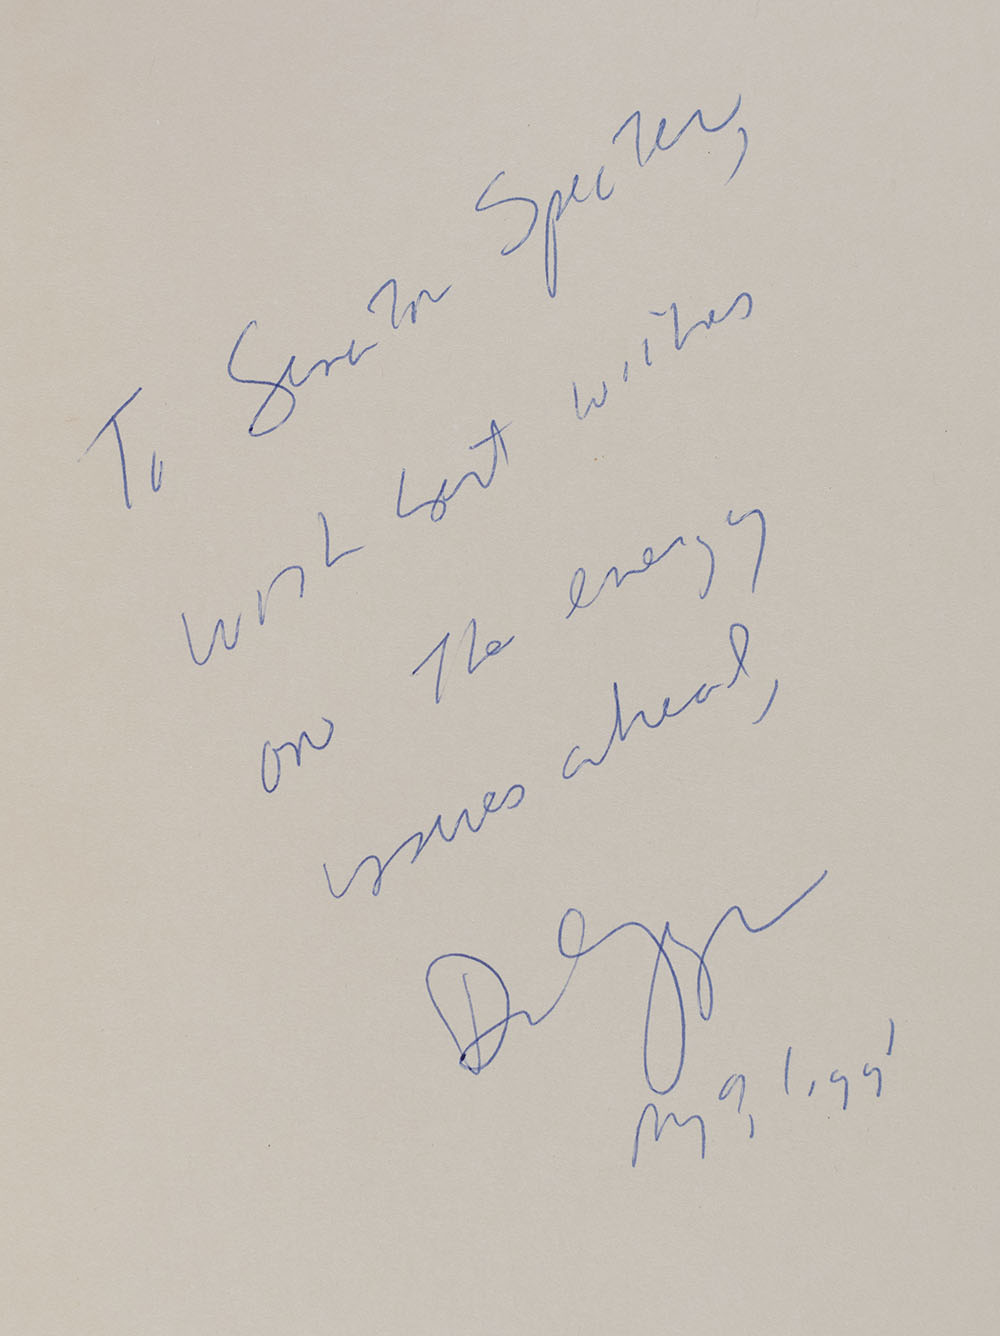 To Senator Specter,
with best wishes
on the energy
issues ahead,